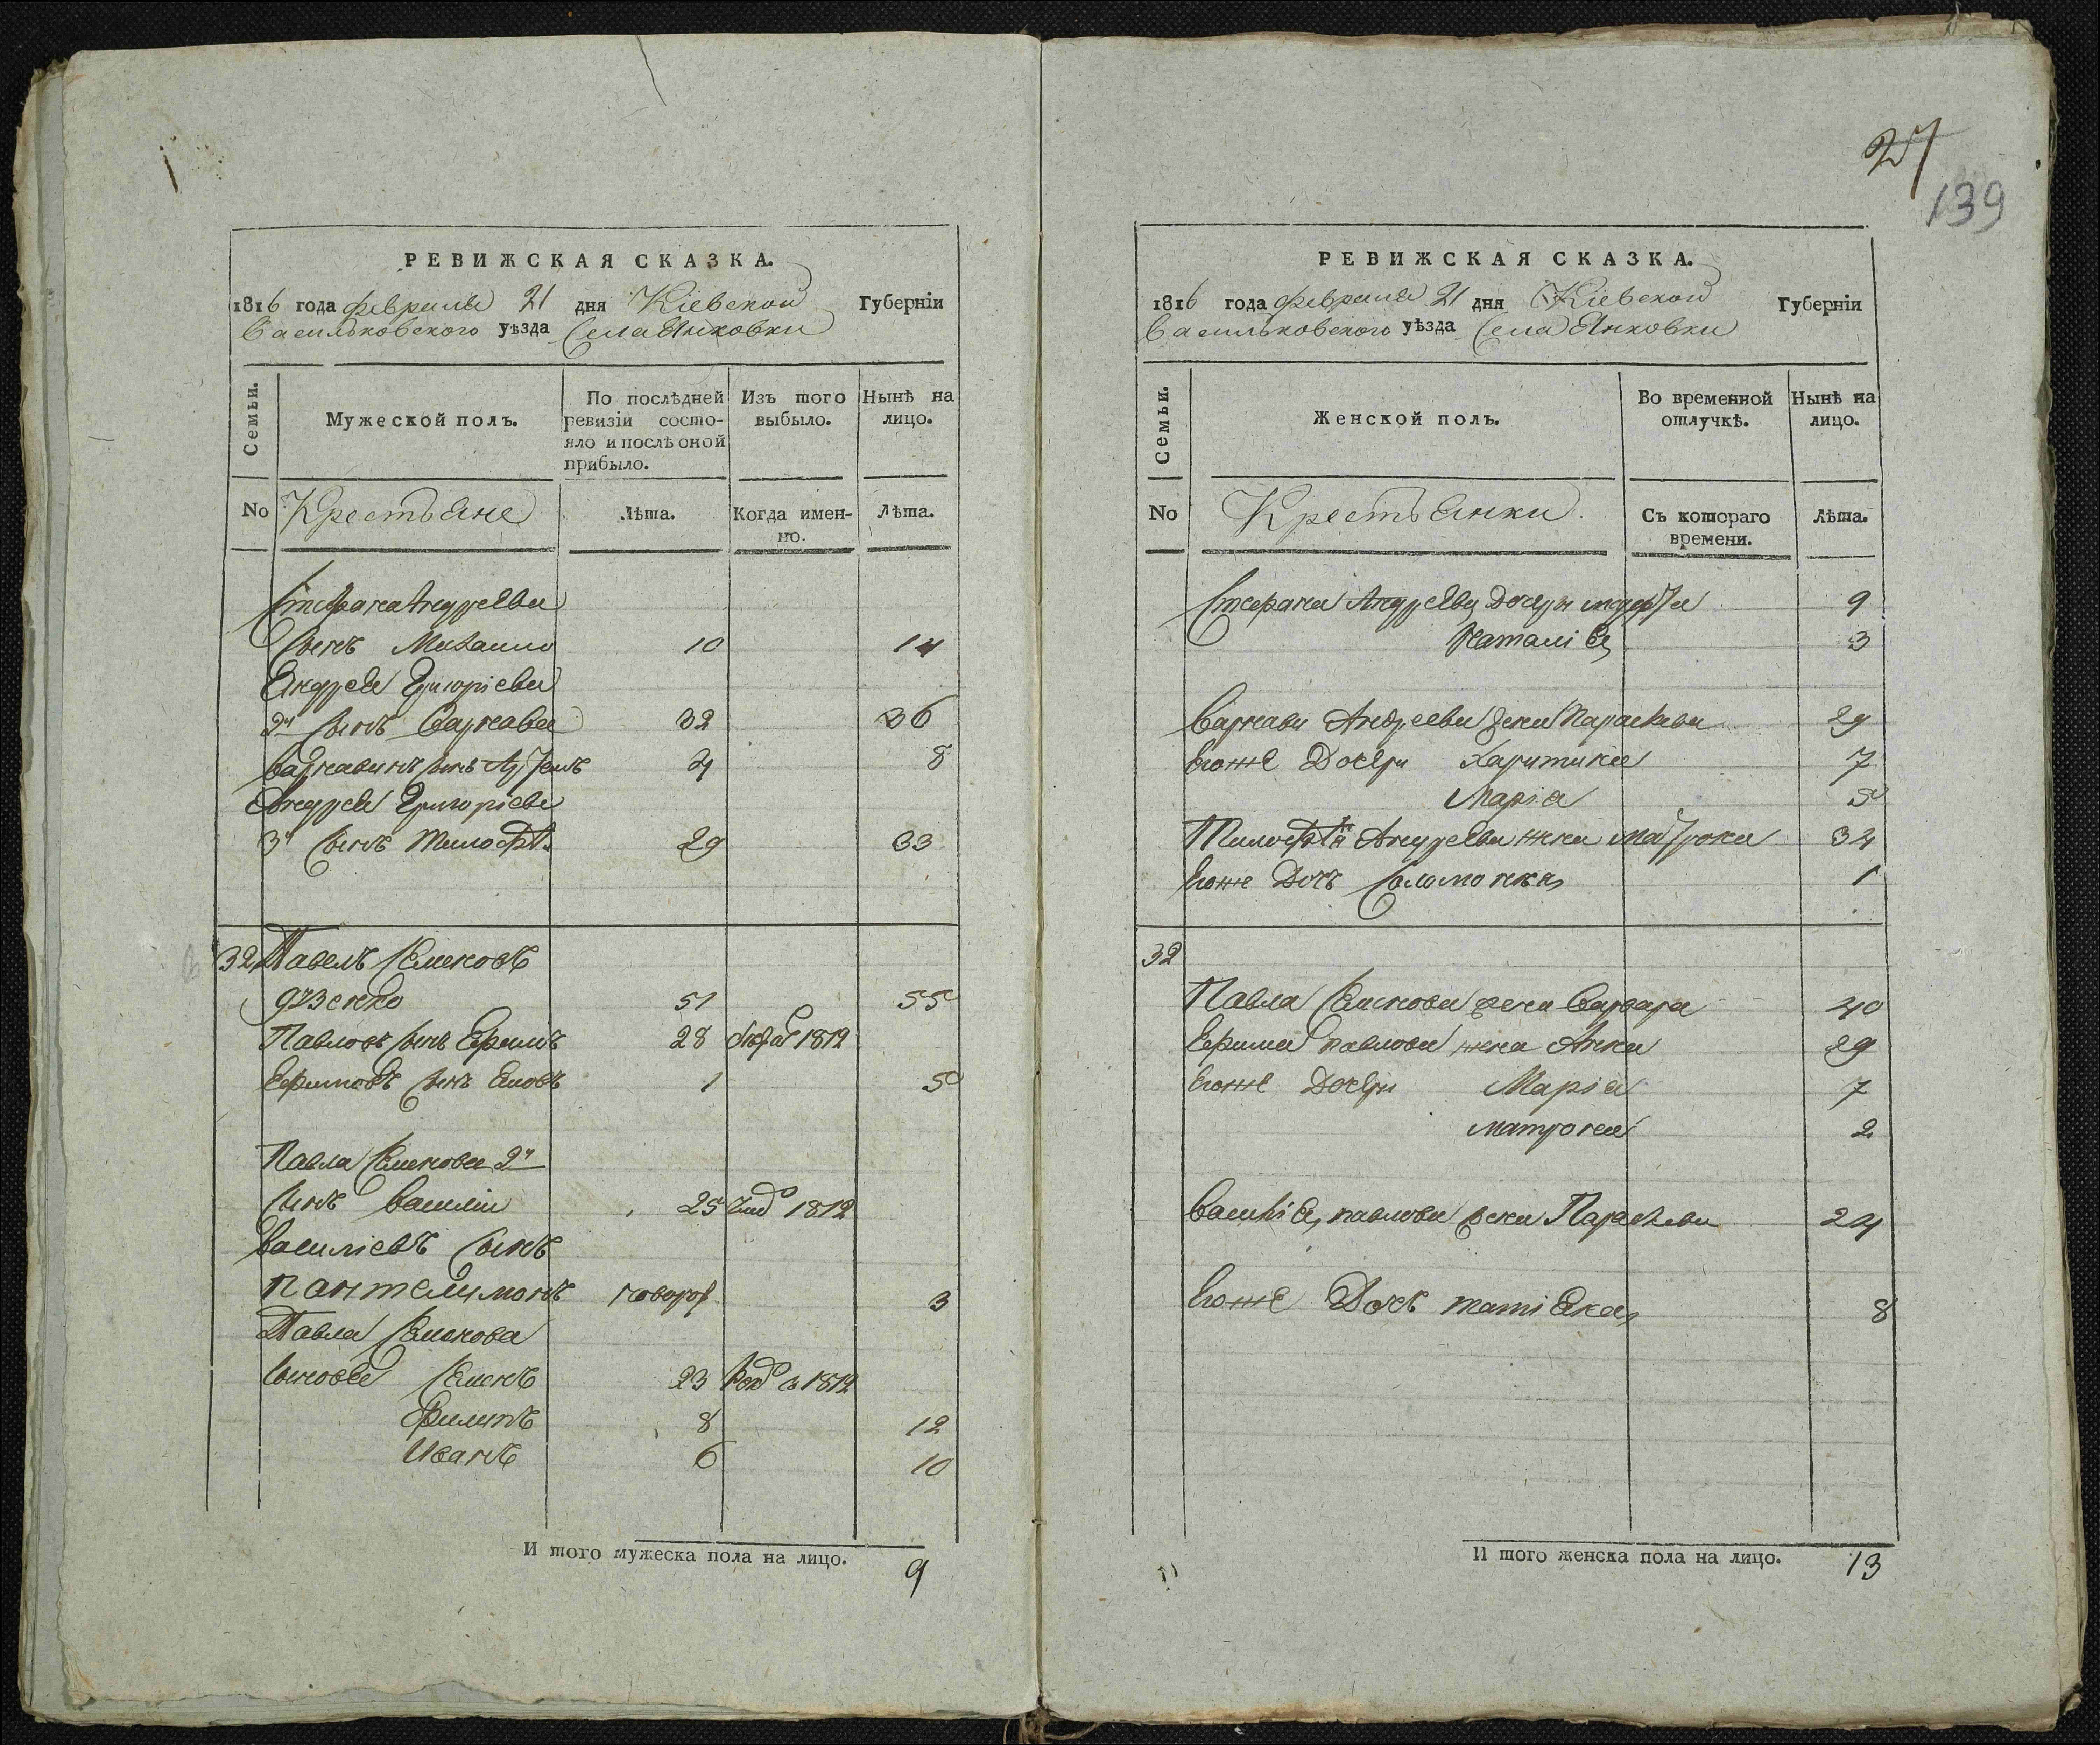 РЕВИЖСКАЯ СКАЗКА.
1816 года февраля 21 дня Кіевской Губерніи
Васильковского уѣзда Села Янковки
Семьи.
Мужеской полъ.
По послѣдней ревизіи состояло и послѣ оной прибыло.
Изъ того выбыло.
Нынѣ на лицо.
No Крестьяне
Лѣта.
Когда именно.
Лѣта.
Стефана Андреева
сынъ Михаило 10 14
Андрея Григоріева
2й сынъ Варнава 32 36
Варнавинъ сынъ 4 8
Андрея Григоріева
3й сынъ Тимофѣй 29 33
32 Павелъ Семеновъ
51 55
Павловъ сынъ Ефимъ 28 1812
Ефимовъ сынъ 1 5
Павла Семенова 2й
сынъ Василій 25 1812
Василіевъ сынъ
Пантелимонъ новорож 3
Павла Семенова
сыновья Семенъ 23 1812
Филипъ 8 12
Иванъ 6 10
И того мужеска пола на лицо. 9
27
139
РЕВИЖСКАЯ СКАЗКА.
1816 года февраля 21 дня Кіевской Губерніи
Васильковского уѣзда Села Янковки
Семьи.
Женской полъ.
Во временной отлучкѣ.
Нынѣ на лицо.
No Крестьянки
Съ котораго времени.
Лѣта.
Стефана Андреева Дочери 9
Наталія 3
Варнавы Андреева жена Параскева 29
Егоже Дочери Харитина 7
Марія 5
Тимофѣя Андреева жена Матрона 34
Егоже Дочь Соломонія 1
32
Павла Семенова жена Варвара 40
Ефима Павлова жена Анна 29
Егоже Дочери Марія 7
матрона 2
Василія павлова жена Параскева 24
Егоже Дочь татіяна 8
И того женска пола на лицо. 13